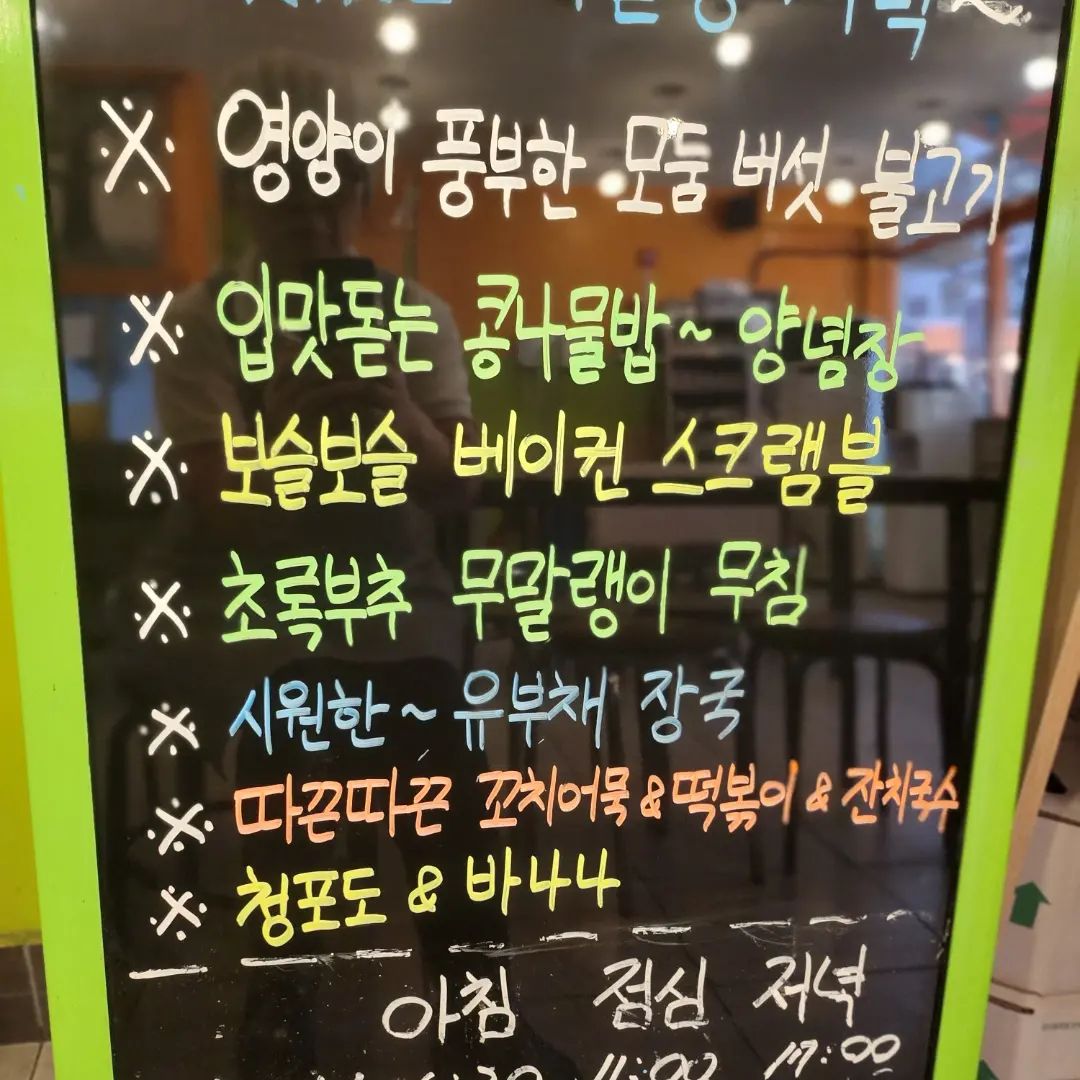 ※ 영양이 풍부한 모둠 버섯 불고기
※ 입맛돋는 콩나물밥~ 양념장
※ 보슬보슬 베이컨 스크램블
※ 초록부추 무말랭이 무침
※ 시원한~ 유부채 장국
※ 따끈따끈 꼬치어묵 & 떡볶이 & 잔치국수
※ 청포도 & 바나나
아침 점심 저녁
11:00 17:00